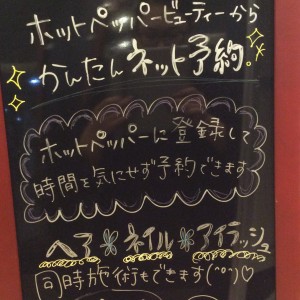 ホットペッパービューティーから
かんたんネット予約。
ホットペッパーに登録して
時間を気にせず予約できます
ヘア✽ネイル✽アイラッシュ
同時施術もできます(^^)♡